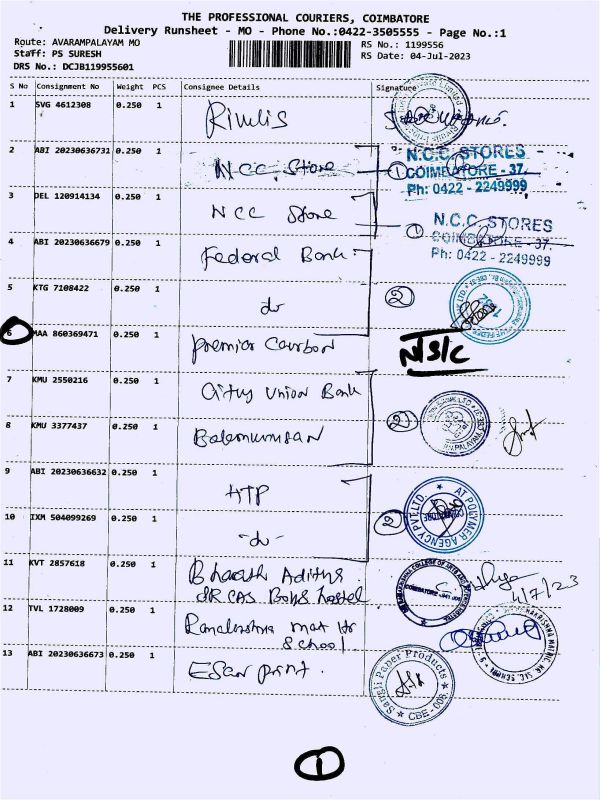 THE PROFESSIONAL COURIERS, COIMBATORE
Delivery Runsheet - MO - Phone No.:0422-3505555 - Page No.:1
Route: AVARAMPALAYAM MO
RS No.: 1199556
Staff: PS SURESH
RS Date: 04-Jul-2023
DRS No.: DCJB119955601
S No Consignment No Weight PCS Consignee Details Signature
1 SVG 4612308 0.250 1
2 ABI 20230636731 0.250 1 NCC Store
1 N.C.C. STORES
COIMBATORE - 37.
Ph: 0422 - 2249999
3 DEL 120914134 0.250 1 NCC Store
1 N.C.C. STORES
COIMBATORE - 37.
Ph: 0422 - 2249999
4 ABI 20230636679 0.250 1 Federal Bank
5 KTG 7108422 0.250 1 do 2
6 MAA 860369471 0.250 1 Premier Carbon N/S/C
7 KMU 2550216 0.250 1 City Union Bank
8 KMU 3377437 0.250 1 Balamurugan 2
9 ABI 20230636632 0.250 1 ATP
AT POLYMER AGENCY PVT.LTD.
10 IXM 504099269 0.250 1 -do- 2
11 KVT 2857618 0.250 1 Bharath Adithya
SR CAS Boys hostel
4/7/23
12 TVL 1728009 0.250 1 Ramakrishna mat Hr
School
13 ABI 20230636673 0.250 1 Esar print.
Paper Products
CBE - 006
1